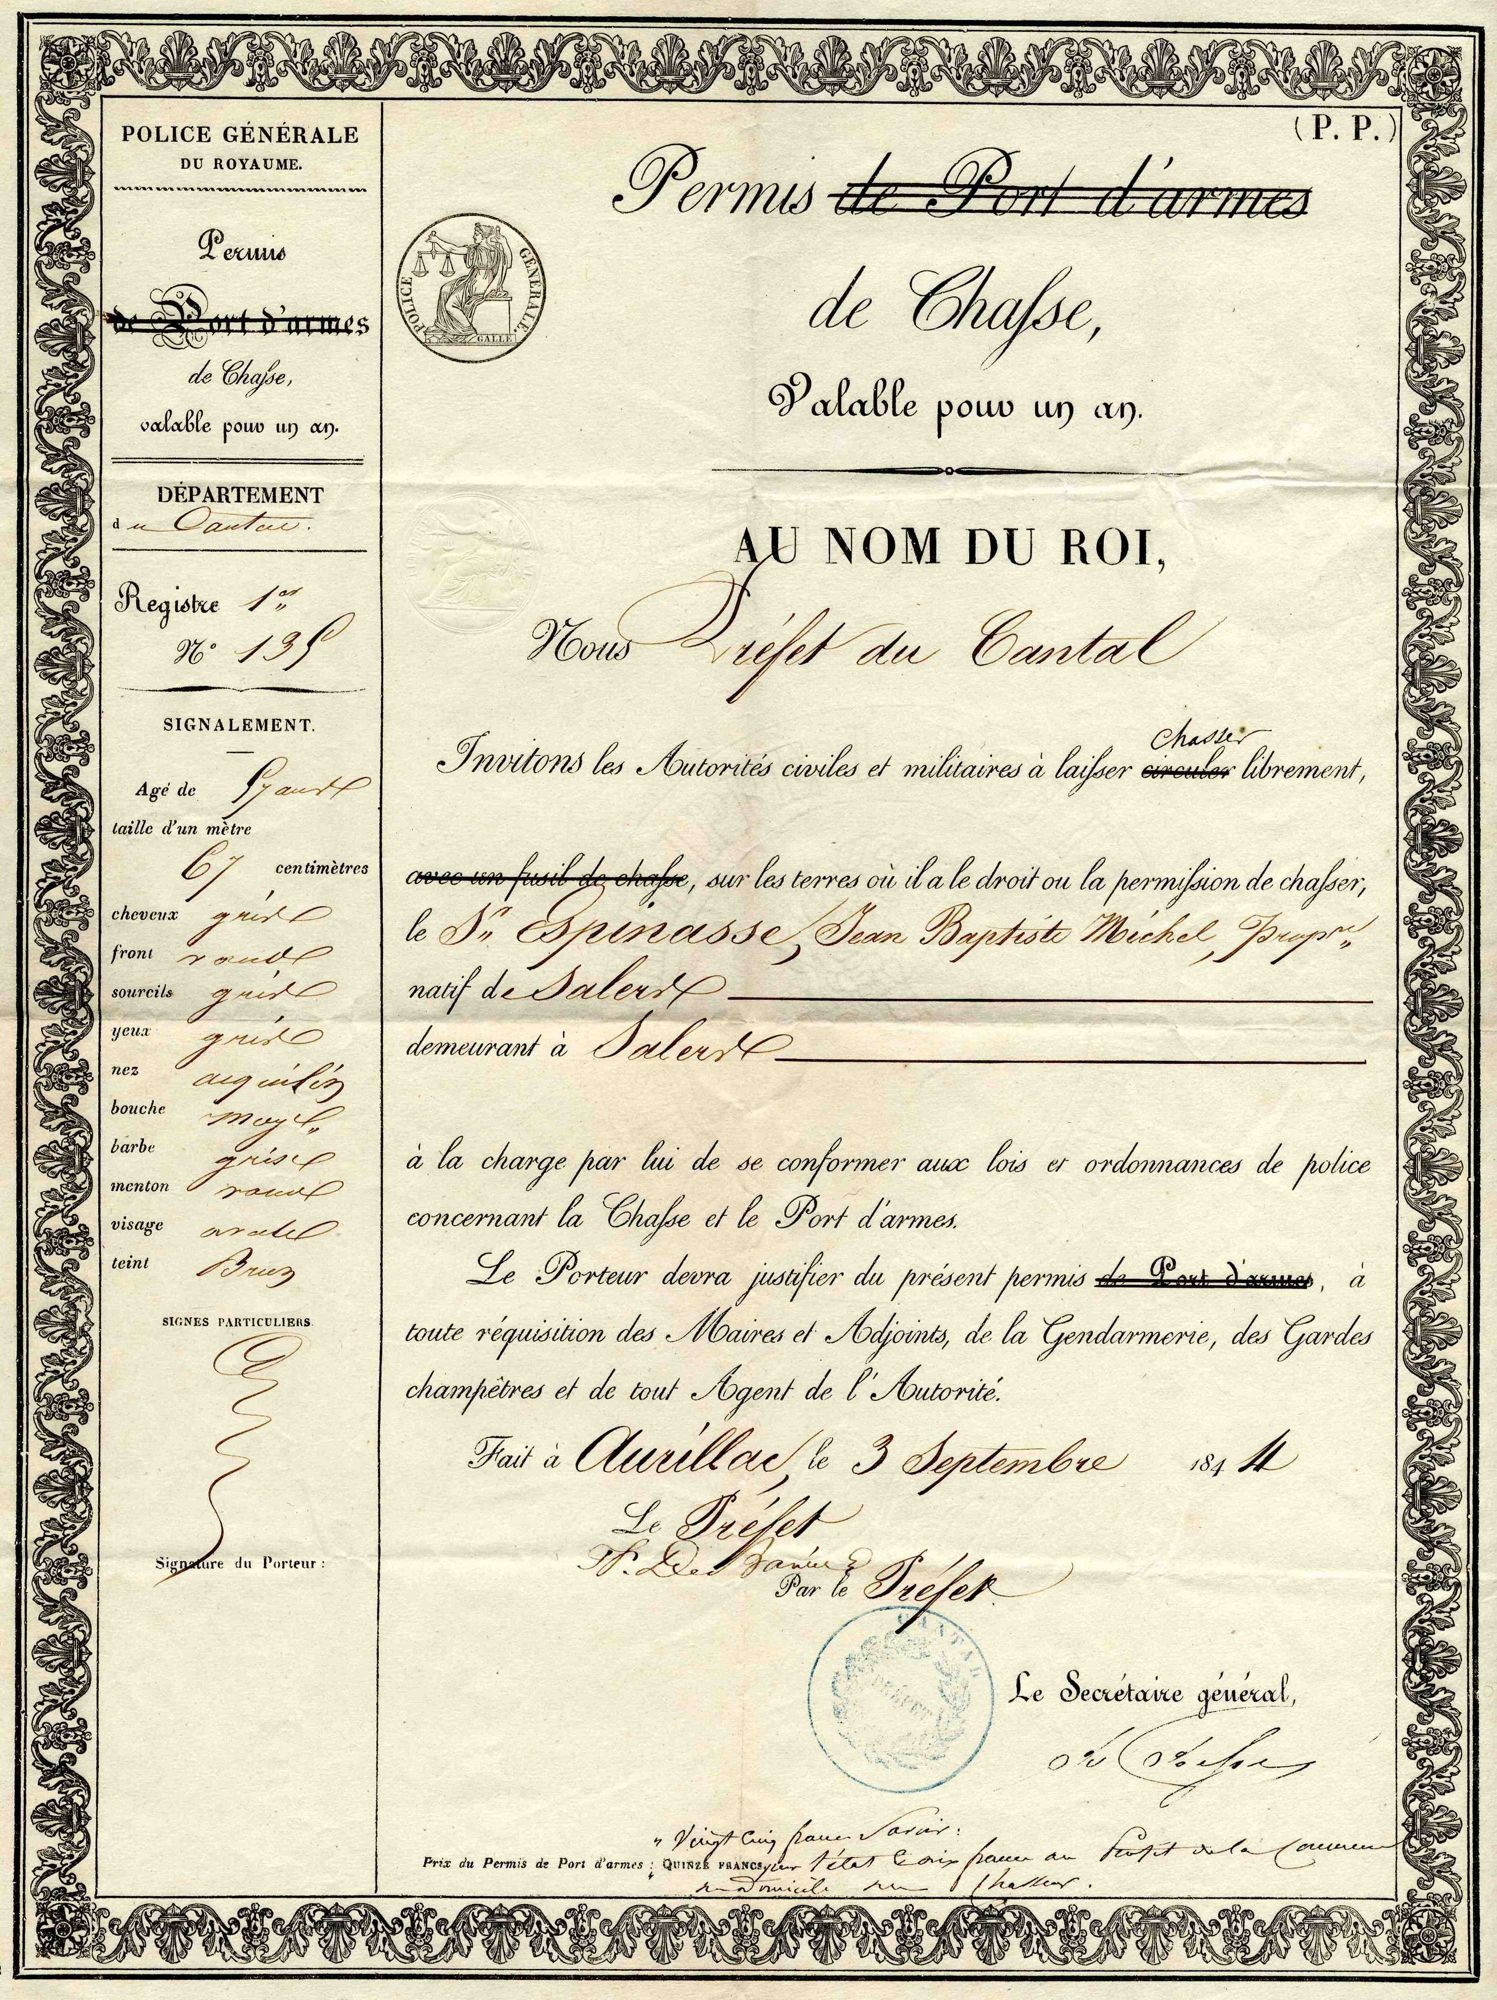 POLICE GÉNÉRALE
DU ROYAUME.
Permis
de Port d'armes
de Chasse,
valable pour un an.
DÉPARTEMENT
du Cantal.
Registre 1er
N° 135
SIGNALEMENT.
Agé de 57 ans
taille d'un mètre
67 centimètres
cheveux gris
front rond
sourcils gris
yeux gris
nez aquilin
bouche moye
barbe grise
menton rond
visage ovale
teint Brun
SIGNES PARTICULIERS
Signature du Porteur :
(P. P.)
Permis de Port d'armes
de Chasse,
Valable pour un an.
POLICE GÉNÉRALE.
GALLE
AU NOM DU ROI,
Nous Préfet du Cantal
chasser
Invitons les Autorités civiles et militaires à laisser circuler librement,
avec un fusil de chasse, sur les terres où il a le droit ou la permission de chasser,
le Sr Espinasse, Jean Baptiste Michel, Propre
natif de Salers
demeurant à Salers
à la charge par lui de se conformer aux lois et ordonnances de police
concernant la Chasse et le Port d'armes.
Le Porteur devra justifier du présent permis de Port d'armes, à
toute réquisition des Maires et Adjoints, de la Gendarmerie, des Gardes
champêtres et de tout Agent de l'Autorité.
Fait à Aurillac, le 3 Septembre 1844
Le Préfet
Par le Préfet
CANTAL
PRÉFET
Le Secrétaire général,
Vingt Cinq francs Savoir :
Prix du Permis de Port d'armes : QUINZE FRANCS pour l'état et dix francs au Profit de la Commune
du Domicile du Chasseur.